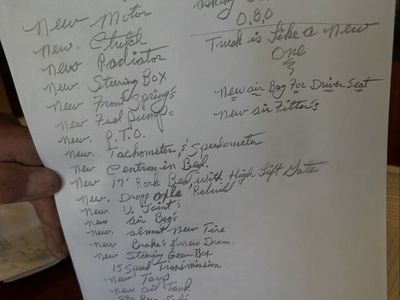 New Motor
New. Clutch
New Radiator
New. Stering Box
New Front Spring's
New Fuel Pump =
New. P.T.O.
New. Tachometer, & Speedometer
New Centron in Bed.
New 17' Rock Bed with High Lift Gate
New. Drop axle Rebuild
New. U. Joint's
new air Bag's
new. almost New Tire
new Brake's & new Drum.
new Stering Gear Box
15 Speed Transmission
new Tarp
new oil Tank
O.B.O
Truck is Like a New
One
New air Bag For Driver Seat
New air Filter's